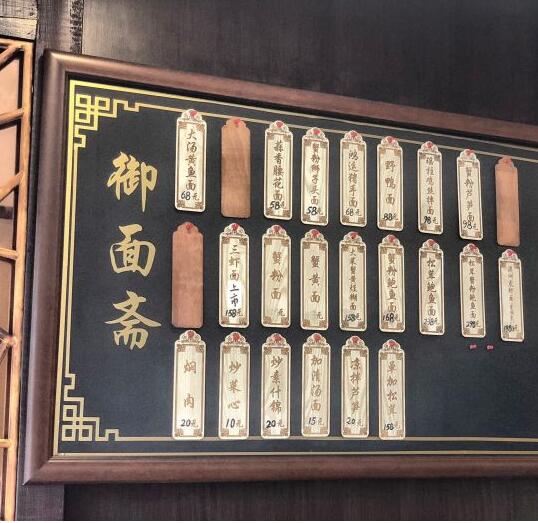 御面斋
大汤黄鱼面 68元
蒜香腰花面 58元
蟹粉狮子头面 58元
鸿运猪手面 68元
野鸭面 88元
鸡丝拌面 98元
蟹粉芦笋面 98元
三虾面 上市 158元
蟹粉面 元
蟹黄面 元
大莱蟹黄烩糊面 158元
蟹粉鲍鱼面 168元
松茸鲍鱼面 238元
松茸蟹粉鲍鱼面 298元
焖肉 20元
炒菜心 10元
炒素什锦 20元
加清汤面 15元
凉拌芦笋 20元
单加松茸 158元